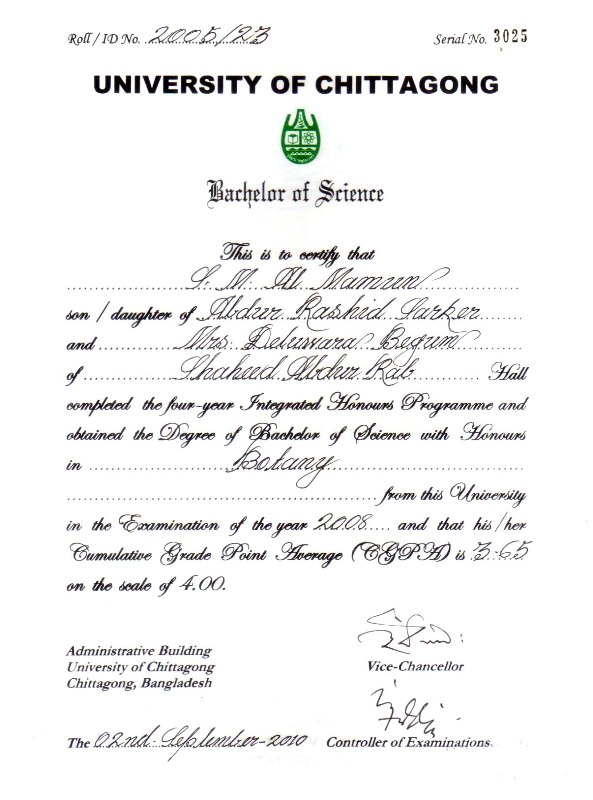 Roll / ID No. 2005/23 Serial No. 3025
UNIVERSITY OF CHITTAGONG
Bachelor of Science
This is to certify that
S. M. Al Mamun
son / daughter of Abdur Rashid Sarker
and Mrs. Deluwara Begum
of Shaheed Abdur Rab Hall
completed the four-year Integrated Honours Programme and
obtained the Degree of Bachelor of Science with Honours
in Botany
from this University
in the Examination of the year 2008 and that his/her
Cumulative Grade Point Average (CGPA) is 3.65
on the scale of 4.00.
Administrative Building
University of Chittagong
Chittagong, Bangladesh
Vice-Chancellor
The 02nd September-2010 Controller of Examinations.